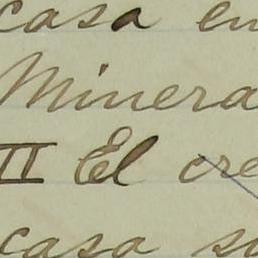 casa en
Minera
II El cre
casa su